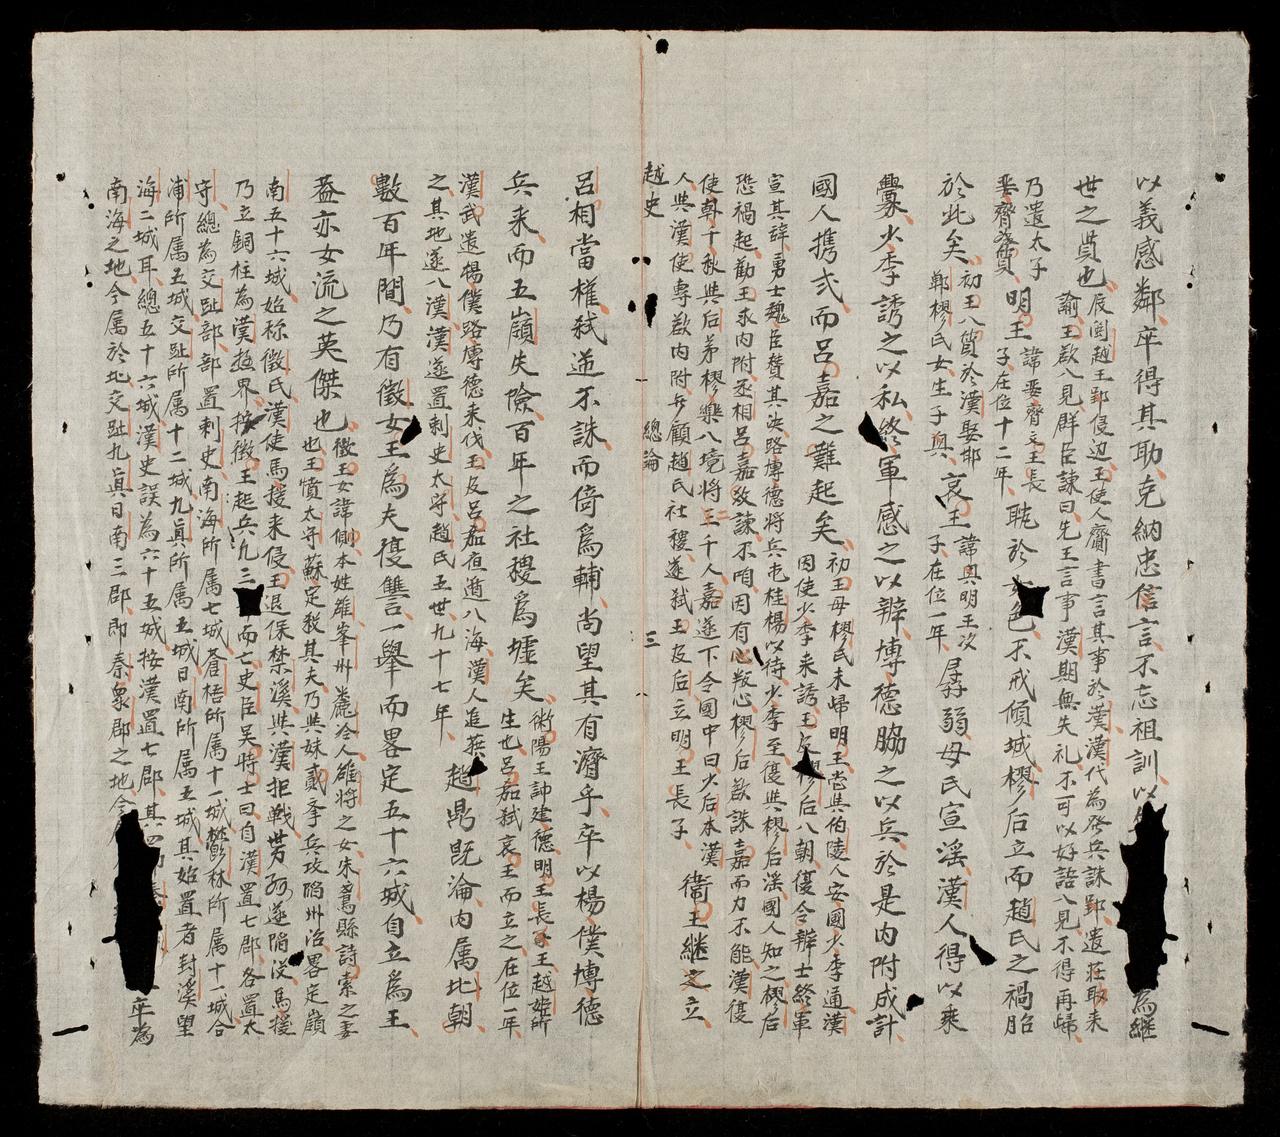 以義感鄰卒得其助克納忠信言不忘祖訓以
為継
世之賢也
辰閩越王郢侵边王使人齎書言其事於漢漢代為発兵誅郢遣莊助来
諭王欲入見群臣諫曰先王言事漢期無失礼不可以好語入見不得再帰
乃遣太子
嬰齊入質
明王
諱嬰齊文王長
子在位十二年
耽於
色不戒傾城樛后立而趙氏之禍胎
於此矣
初王入質於漢娶邯
鄲樛氏女生子興
哀王
諱興明王次
子在位一年
孱弱母氏宣淫漢人得以乘
釁少季誘之以私終軍感之以辯博德脇之以兵於是内附成計
國人携弐而呂嘉之難起矣
初王母樛氏未帰明王甞與伯陵人安國少季通漢
因使少季来誘王及樛后入朝復令辯士終軍
宣其辞勇士魏臣賛其決路博德将兵屯桂楊以待少季至復與樛后淫國人知之樛后
恐禍起勸王求内附丞相呂嘉效諫不听因有心叛心樛后欲誅嘉而力不能漢復
使韓千秋與后弟樛樂入境将二千人嘉遂下令國中曰少后本漢
人與漢使專欲内附无顧趙氏社稷遂弑王及后立明王長子
衛王継之立
越史
總論
三
呂相當權弑逆不誅而倚爲輔尚望其有濟乎卒以楊僕博德
兵来而五嶺失險百年之社稷爲墟矣
術陽王諱建德明王長子王越姬所
生也呂嘉弑哀王而立之在位一年
漢武遣楊僕路博德来伐王及呂嘉夜遁入海漢人追獲
之其地遂入漢漢遂置刺史太守趙氏五世九十七年
趙鼎既淪内属北朝
數百年間乃有徵女王為夫復讐一舉而畧定五十六城自立爲王
葢亦女流之英傑也
徵王女諱側本姓雄峯州麊泠人雄將之女朱鳶縣詩索之妻
也王憤太守蘇定殺其夫乃與妹貳季兵攻陷州治畧定嶺
南五十六城始称徵氏漢使馬援来侵王退保禁溪與漢拒戰势孤遂陷没馬援
乃立銅柱為漢極界按徵王起兵九三
而亡史臣吴時士曰自漢置七郡各置太
守總為交趾部部置刺史南海所属七城蒼梧所属十一城欝林所属十一城合
浦所属五城交趾所属十二城九眞所属五城日南所属五城其始置者封溪望
海二城耳總五十六城漢史誤為六十五城按漢置七郡其四
卒為
南海之地今属於北交趾九眞日南三郡即秦象郡之地今